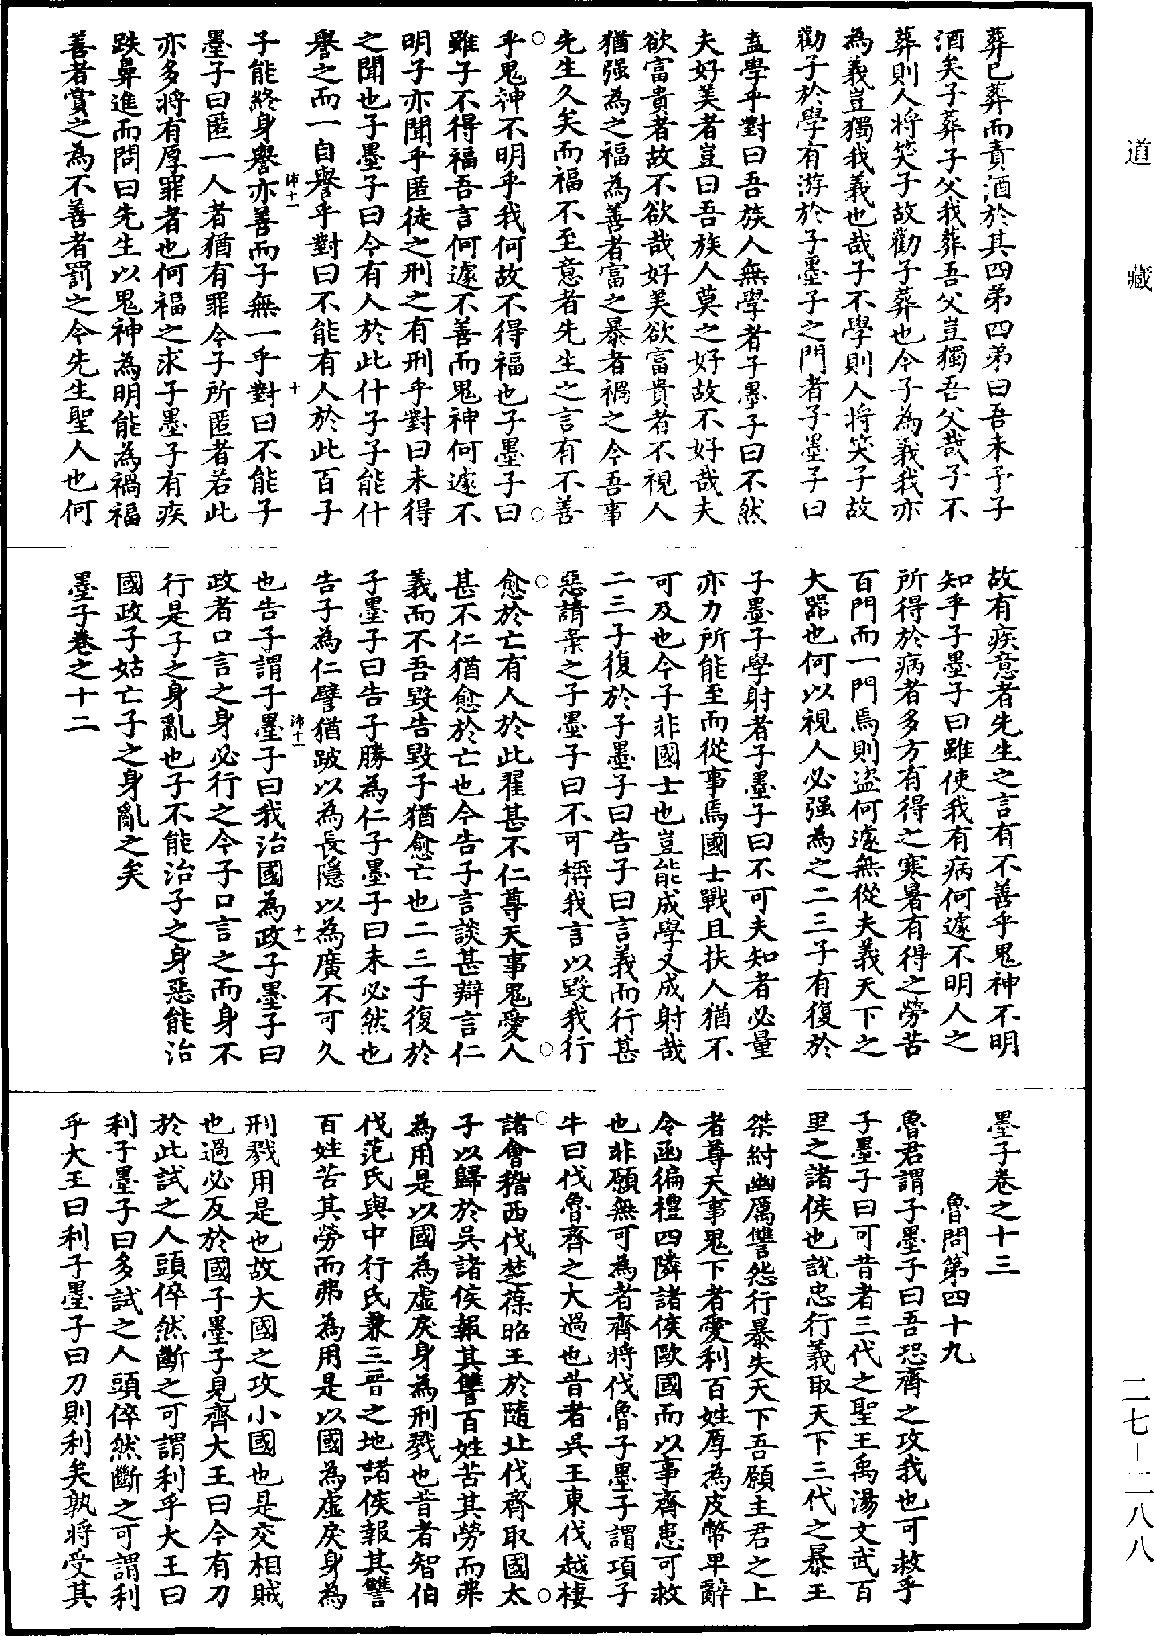 道藏
葬已葬而責酒於其四弟四弟曰吾未予子
酒矣子葬子父我葬吾父豈獨吾父哉子不
葬則人將笑子故勸子葬也今子為義我亦
為義豈獨我義也哉子不學則人將笑子故
勸子於學有游於子墨子之門者子墨子曰
盍學乎對曰吾族人無學者子墨子曰不然
夫好美者豈曰吾族人莫之好故不好哉夫
欲富貴者故不欲哉好美欲富貴者不視人
猶强為之福為善者富之暴者禍之今吾事
先生久矣而福不至意者先生之言有不善
乎鬼神不明乎我何故不得福也子墨子曰
雖子不得福吾言何遽不善而鬼神何遽不
明子亦聞乎匿徒之刑之有刑乎對曰未得
之聞也子墨子曰今有人於此什子子能什
譽之而一自譽乎對曰不能有人於此百子
子能終身譽亦善而子無一乎對曰不能子
墨子曰匿一人者猶有罪今子所匿者若此
亦多將有厚罪者也何福之求子墨子有疾
跌鼻進而問曰先生以鬼神為明能為禍福
善者賞之為不善者罰之今先生聖人也何
故有疾意者先生之言有不善乎鬼神不明
知乎子墨子曰雖使我有病何遽不明人之
所得於病者多方有得之寒暑有得之勞苦
百門而一門焉則盜何遽無從夫義天下之
大器也何以視人必强為之二三子有復於
子墨子學射者子墨子曰不可夫知者必量
亦力所能至而從事焉國士戰且扶人猶不
可及也今子非國士也豈能成學又成射哉
二三子復於子墨子曰告子曰言義而行甚
惡請棄之子墨子曰不可稱我言以毀我行
愈於亡有人於此翟甚不仁尊天事鬼愛人
甚不仁猶愈於亡也今告子言談甚辯言仁
義而不吾毀告毀子猶愈亡也二三子復於
子墨子曰告子勝為仁子墨子曰未必然也
告子為仁譬猶跛以為長隱以為廣不可久
也告子謂子墨子曰我治國為政子墨子曰
政者口言之身必行之今子口言之而身不
行是子之身亂也子不能治子之身惡能治
國政子姑亡子之身亂之矣
墨子卷之十二
墨子卷之十三
魯問第四十九
魯君謂子墨子曰吾恐齊之攻我也可救乎
子墨子曰可昔者三代之聖王禹湯文武百
里之諸侯也說忠行義取天下三代之暴王
桀紂幽厲讐怨行暴失天下吾願主君之上
者尊天事鬼下者愛利百姓厚為皮幣卑辭
令亟徧禮四隣諸侯歐國而以事齊患可救
也非願無可為者齊將伐魯子墨子謂項子
牛曰伐魯齊之大過也昔者吳王東伐越棲
諸會稽西伐楚葆昭王於隨北伐齊取國太
子以歸於吳諸侯報其讐百姓苦其勞而弗
為用是以國為虛戾身為刑戮也昔者智伯
伐范氏與中行氏兼三晉之地諸侯報其讐
百姓苦其勞而弗為用是以國為虛戾身為
刑戮用是也故大國之攻小國也是交相賊
也過必反於國子墨子見齊大王曰今有刀
於此試之人頭倅然斷之可謂利乎大王曰
利子墨子曰多試之人頭倅然斷之可謂利
乎大王曰利子墨子曰刀則利矣孰將受其
二七－二八八